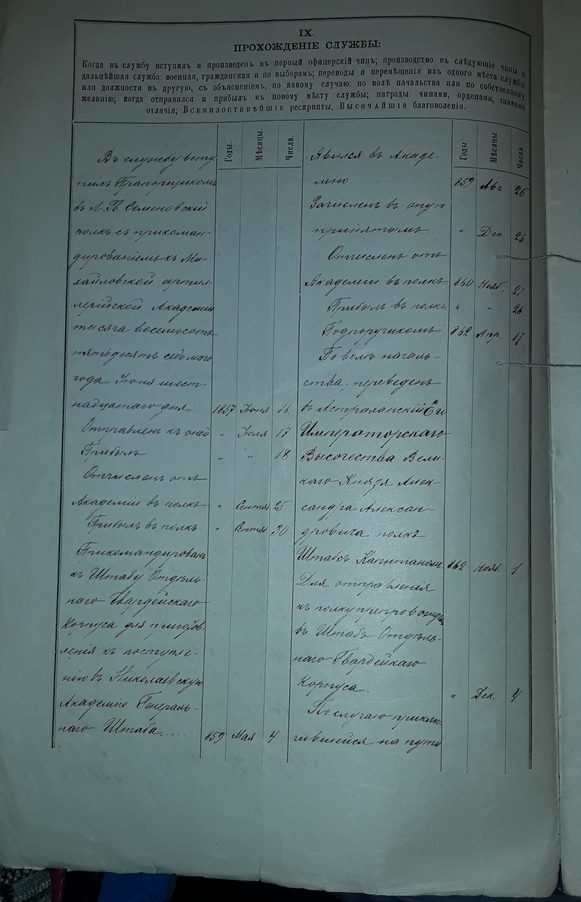 IX.
ПРОХОЖДЕНІЕ СЛУЖБЫ:
Когда въ службу вступилъ и произведенъ въ первый офицерскій чинъ; производство въ слѣдующіе чины и
дальнѣйшая служба: военная, гражданская и по выборамъ; переводы и перемѣщенія изъ одного мѣста службы
или должности въ другую, съ объясненіемъ, по какому случаю: по волѣ начальства или по собственному
желанію; когда отправился и прибылъ къ новому мѣсту службы; награды: чинами, орденами, знаками
отличія; Всемилостивѣйшіе рескрипты, Высочайшія благоволенія.
Годы. Мѣсяцы. Числа.
Въ службу всту
пилъ Прапорщикомъ
въ Л. Гв. Семеновскій
полкъ съ прикоман-
дированіемъ къ Ми-
хайловской артил-
лерійской Академіи
тысяча восемьсотъ
пятьдесятъ седьмаго
года Іюня шест-
надцатаго дня 1857 Іюня 16
Отправленъ къ оной " Іюля 17
Прибылъ " " 18
Отчисленъ отъ
Академіи въ полкъ " 25
Прибылъ въ полкъ " 30
Прикомандированъ
къ Штабу Отдѣль-
наго Гвардейскаго
Корпуса для приготов
ленія къ поступле-
нію въ Николаевскую
Академію Генераль-
наго Штаба 859 Мая 4
Годы. Мѣсяцы. Числа.
Явился въ Акаде-
мію 859 Авг. 25
Зачисленъ въ оную
принятымъ " Дек. 25
Отчисленъ отъ
Академіи въ полкъ 860 Нояб. 21
Прибылъ въ полкъ " " 26
Подпоручикомъ 862 Апр. 17
По волѣ началь-
ства переведенъ
въ Астраханскій Его
Императорскаго
Высочества Вели-
каго Князя Алек-
сандра Алексан-
дровича полкъ
Штабсъ Капитаномъ 862 Нояб. 1
Для отправленія
къ полку препровожденъ
въ Штабъ Отдѣль-
наго Гвардейскаго
Корпуса " Дек. 4
По случаю приклю
чившейся на пути